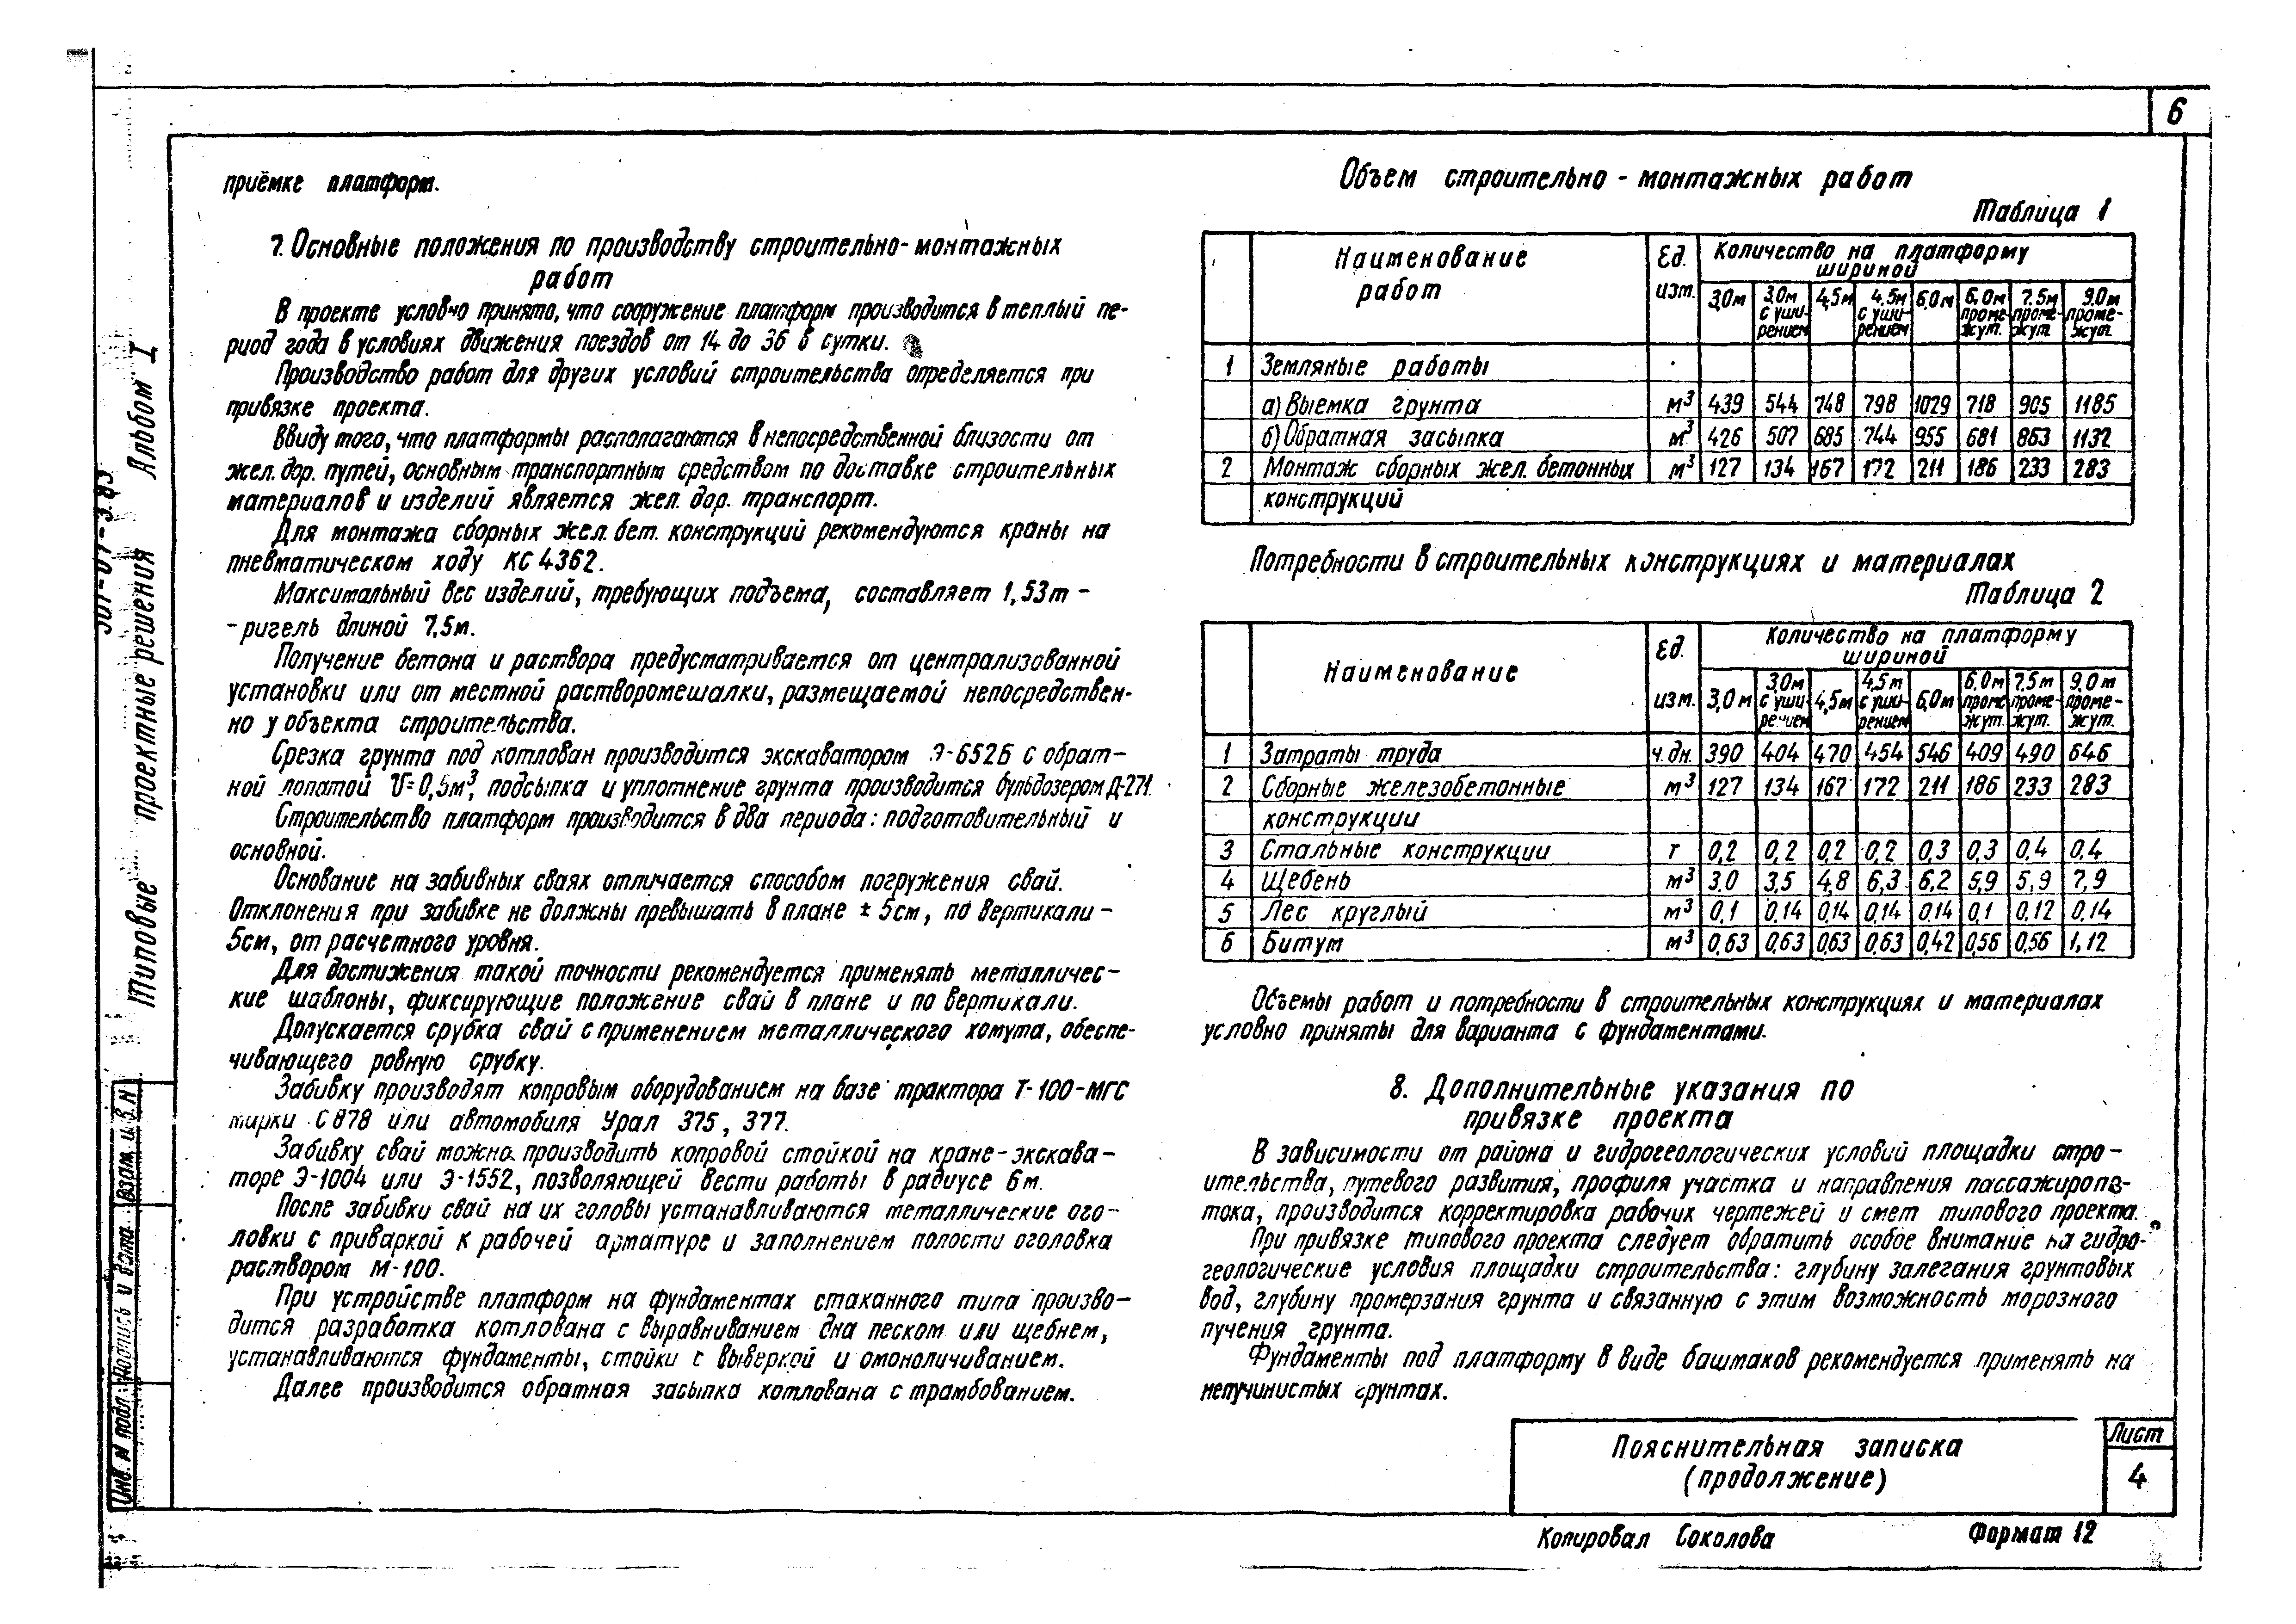 6
приёмке платформ.
7. Основные положения по производству строительно-монтажных
работ
В проекте условно принято, что сооружение платформ производится в теплый пе-
риод года в условиях движения поездов от 14 до 36 в сутки.
Производство работ для других условий строительства определяется при
привязке проекта.
Ввиду того, что платформы располагаются в непосредственной близости от
жел. дор. путей, основным транспортным средством по доставке строительных
материалов и изделий является жел. дор. транспорт.
Для монтажа сборных жел. бет. конструкций рекомендуются краны на
пневматическом ходу КС 4362.
Максимальный вес изделий, требующих подъема, составляет 1,53т -
- ригель длиной 7,5м.
Получение бетона и раствора предусматривается от централизованной
установки или от местной растворомешалки, размещаемой непосредствен-
но у объекта строительства.
Срезка грунта под котлован производится экскаватором Э-652Б с обрат-
ной лопатой V=0,5м³, подсыпка и уплотнение грунта производится бульдозером Д-271.
Строительство платформ производится в два периода: подготовительный и
основной.
Основание на забивных сваях отличается способом погружения свай.
Отклонения при забивке не должны превышать в плане ± 5см, по вертикали -
5см, от расчетного уровня.
Для достижения такой точности рекомендуется применять металличес-
кие шаблоны, фиксирующие положение свай в плане и по вертикали.
Допускается срубка свай с применением металлического хомута, обеспе-
чивающего ровную срубку.
Забивку производят копровым оборудованием на базе трактора Т-100-МГС
марки С 878 или автомобиля Урал 375, 377.
Забивку свай можно производить копровой стойкой на кране-экскава-
торе Э-1004 или Э-1552, позволяющей вести работы в радиусе 6м.
После забивки свай на их головы устанавливаются металлические ого-
ловки с приваркой к рабочей арматуре и заполнением полости оголовка
раствором М-100.
При устройстве платформ на фундаментах стаканного типа произво-
дится разработка котлована с выравниванием дна песком или щебнем,
устанавливаются фундаменты, стойки с выверкой и омоноличиванием.
Далее производится обратная засыпка котлована с трамбованием.
Объем строительно - монтажных работ
Таблица 1
Наименование работ Ед. изм. Количество на платформу шириной
3,0м 3,0м с уши-рением 4,5м 4,5м с уши-рением 6,0м 6,0м проме-жут. 7,5м проме-жут. 9,0м проме-жут.
1 Земляные работы
а) Выемка грунта м³ 439 544 748 798 1029 718 905 1185
б) Обратная засыпка м³ 426 507 685 744 955 681 863 1132
2 Монтаж сборных жел. бетонных м³ 127 134 167 172 211 186 233 283
конструкций
Потребности в строительных конструкциях и материалах
Таблица 2
Наименование Ед. изм. Количество на платформу шириной
3,0м 3,0м с уши-речием 4,5м 4,5м с уши-рением 6,0м 6,0м проме-жут. 7,5м проме-жут. 9,0м проме-жут.
1 Затраты труда ч. дн. 390 404 470 454 546 409 490 646
2 Сборные железобетонные м³ 127 134 167 172 211 186 233 283
конструкции
3 Стальные конструкции т 0,2 0,2 0,2 0,2 0,3 0,3 0,4 0,4
4 Щебень м³ 3,0 3,5 4,8 6,3 6,2 5,9 5,9 7,9
5 Лес круглый м³ 0,1 0,14 0,14 0,14 0,14 0,1 0,12 0,14
6 Битум м³ 0,63 0,63 0,63 0,63 0,42 0,56 0,56 1,12
Объемы работ и потребности в строительных конструкциях и материалах
условно приняты для варианта с фундаментами.
8. Дополнительные указания по
привязке проекта
В зависимости от района и гидрогеологических условий площадки стро-
ительства, путевого развития, профиля участка и направления пассажиропо-
тока, производится корректировка рабочих чертежей и смет типового проекта.
При привязке типового проекта следует обратить особое внимание на гидро-
геологические условия площадки строительства: глубину залегания грунтовых
вод, глубину промерзания грунта и связанную с этим возможность морозного
пучения грунта.
Фундаменты под платформу в виде башмаков рекомендуется применять на
непучинистых грунтах.
Пояснительная записка
(продолжение)
Лист
4
Копировал Соколова
Формат 12
Типовые проектные решения Альбом I
501-07-3.83
Инв. N подл. Подпись и дата Взам. инв. N